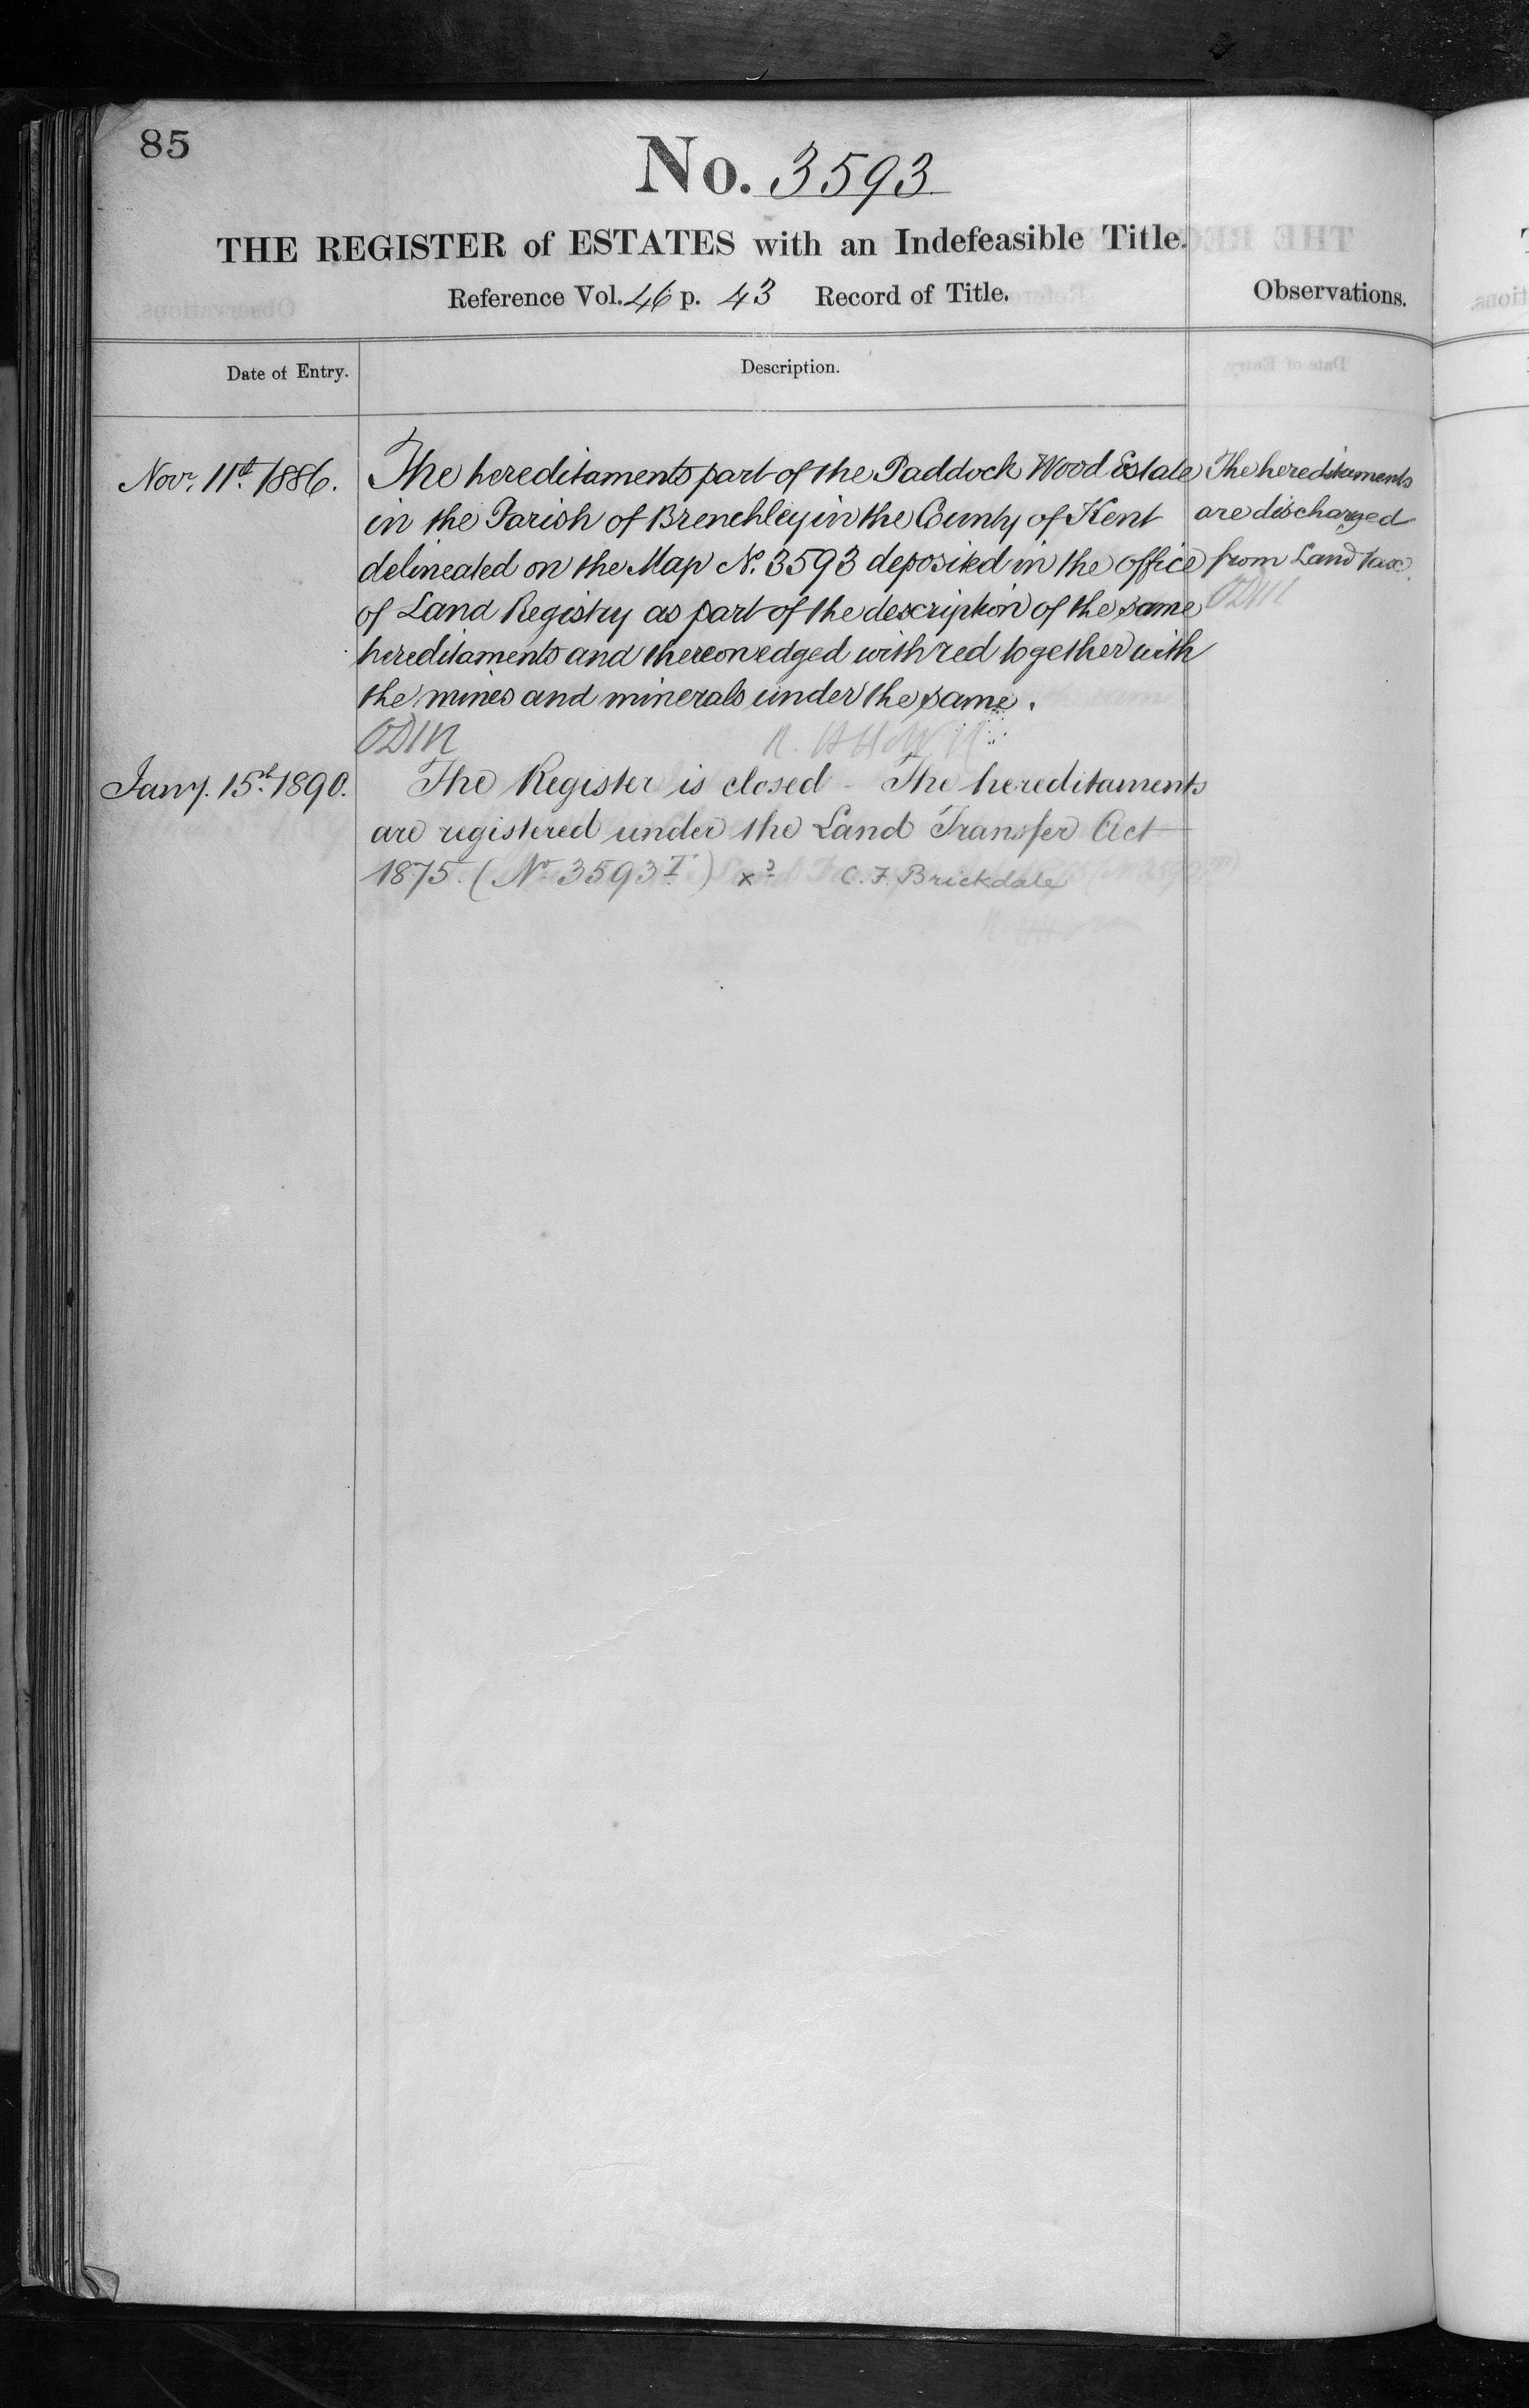 85
No. 3593
THE REGISTER of ESTATES with an Indefeasible Title.
Reference Vol. 46 p. 43 Record of Title.
Observations.
Date of Entry.
Description.
Novr. 11th 1886.
The hereditaments part of the Paddock Wood Estate
in the Parish of Brenchley in the County of Kent
delineated on the Map No. 3593 deposited in the office
of Land Registry as part of the description of the same
hereditaments and thereon edged with red together with
the mines and minerals under the same.
The hereditaments
are discharged
from Land tax.
Jany. 15th 1890.
The Register is closed - The hereditaments
are registered under the Land Transfer Act
1875. (No 3593 I) C. F. Brickdale